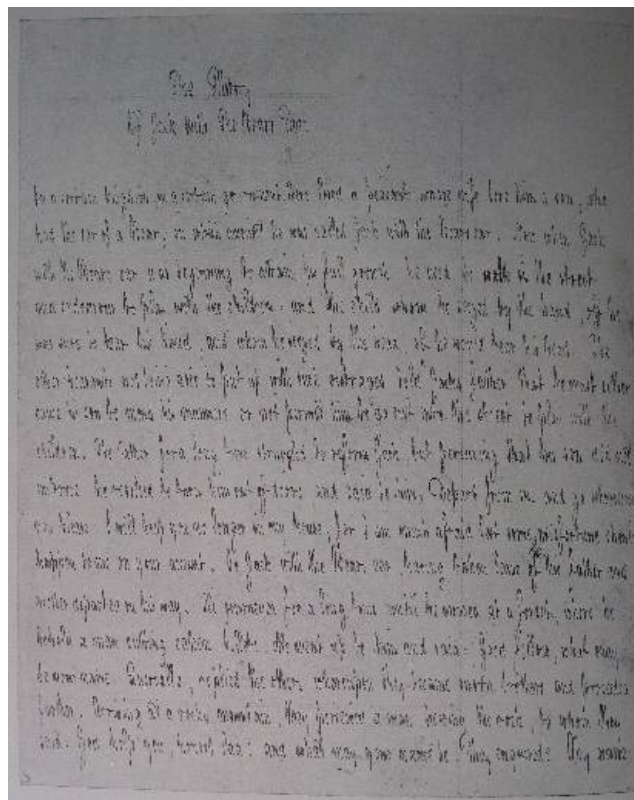 The Story
Of Jack with the Bears Ear
In a certain kingdom in a certain government there lived a peasant whose wife bore him a son, who
had the ear of a bear, on which account he was called Jack with the bears ear. Now when Jack
with the Bears ear was beginning to attain his full growth he used to walk in the street
and endeavour to play with the children, and the child whom he seized by the hand, off he
was sure to tear his hand, and whom he seized by the head, off he would tear his head. The
other peasants not being able to put up with such outrages told Jacks father that he must either
cause his son to mend his manners or not permit him to go out into the street to play with the
children. The father for a long time struggled to reform Jack, but perceiving that his son did not
improve he resolved to turn him out of doors and said to him, Depart from me and go wheresoever
you please. I will keep you no longer in my house, for I am much afraid lest some misfortune should
happen to me on your account. So Jack with the Bears ear, having taken leave of his father and
mother departed on his way. He journeyed for a long time until he arrived at a forest, where he
beheld a man cutting oaken billets. He went up to him and said. Good fellow, what may
be your name. replied the other, whereupon they became sworn brothers and proceeded
farther. Arriving at a rocky mountain, they perceived a man hewing the rock, to whom they
said. God help you, honest lad! and what may your name be? they enquired. My name